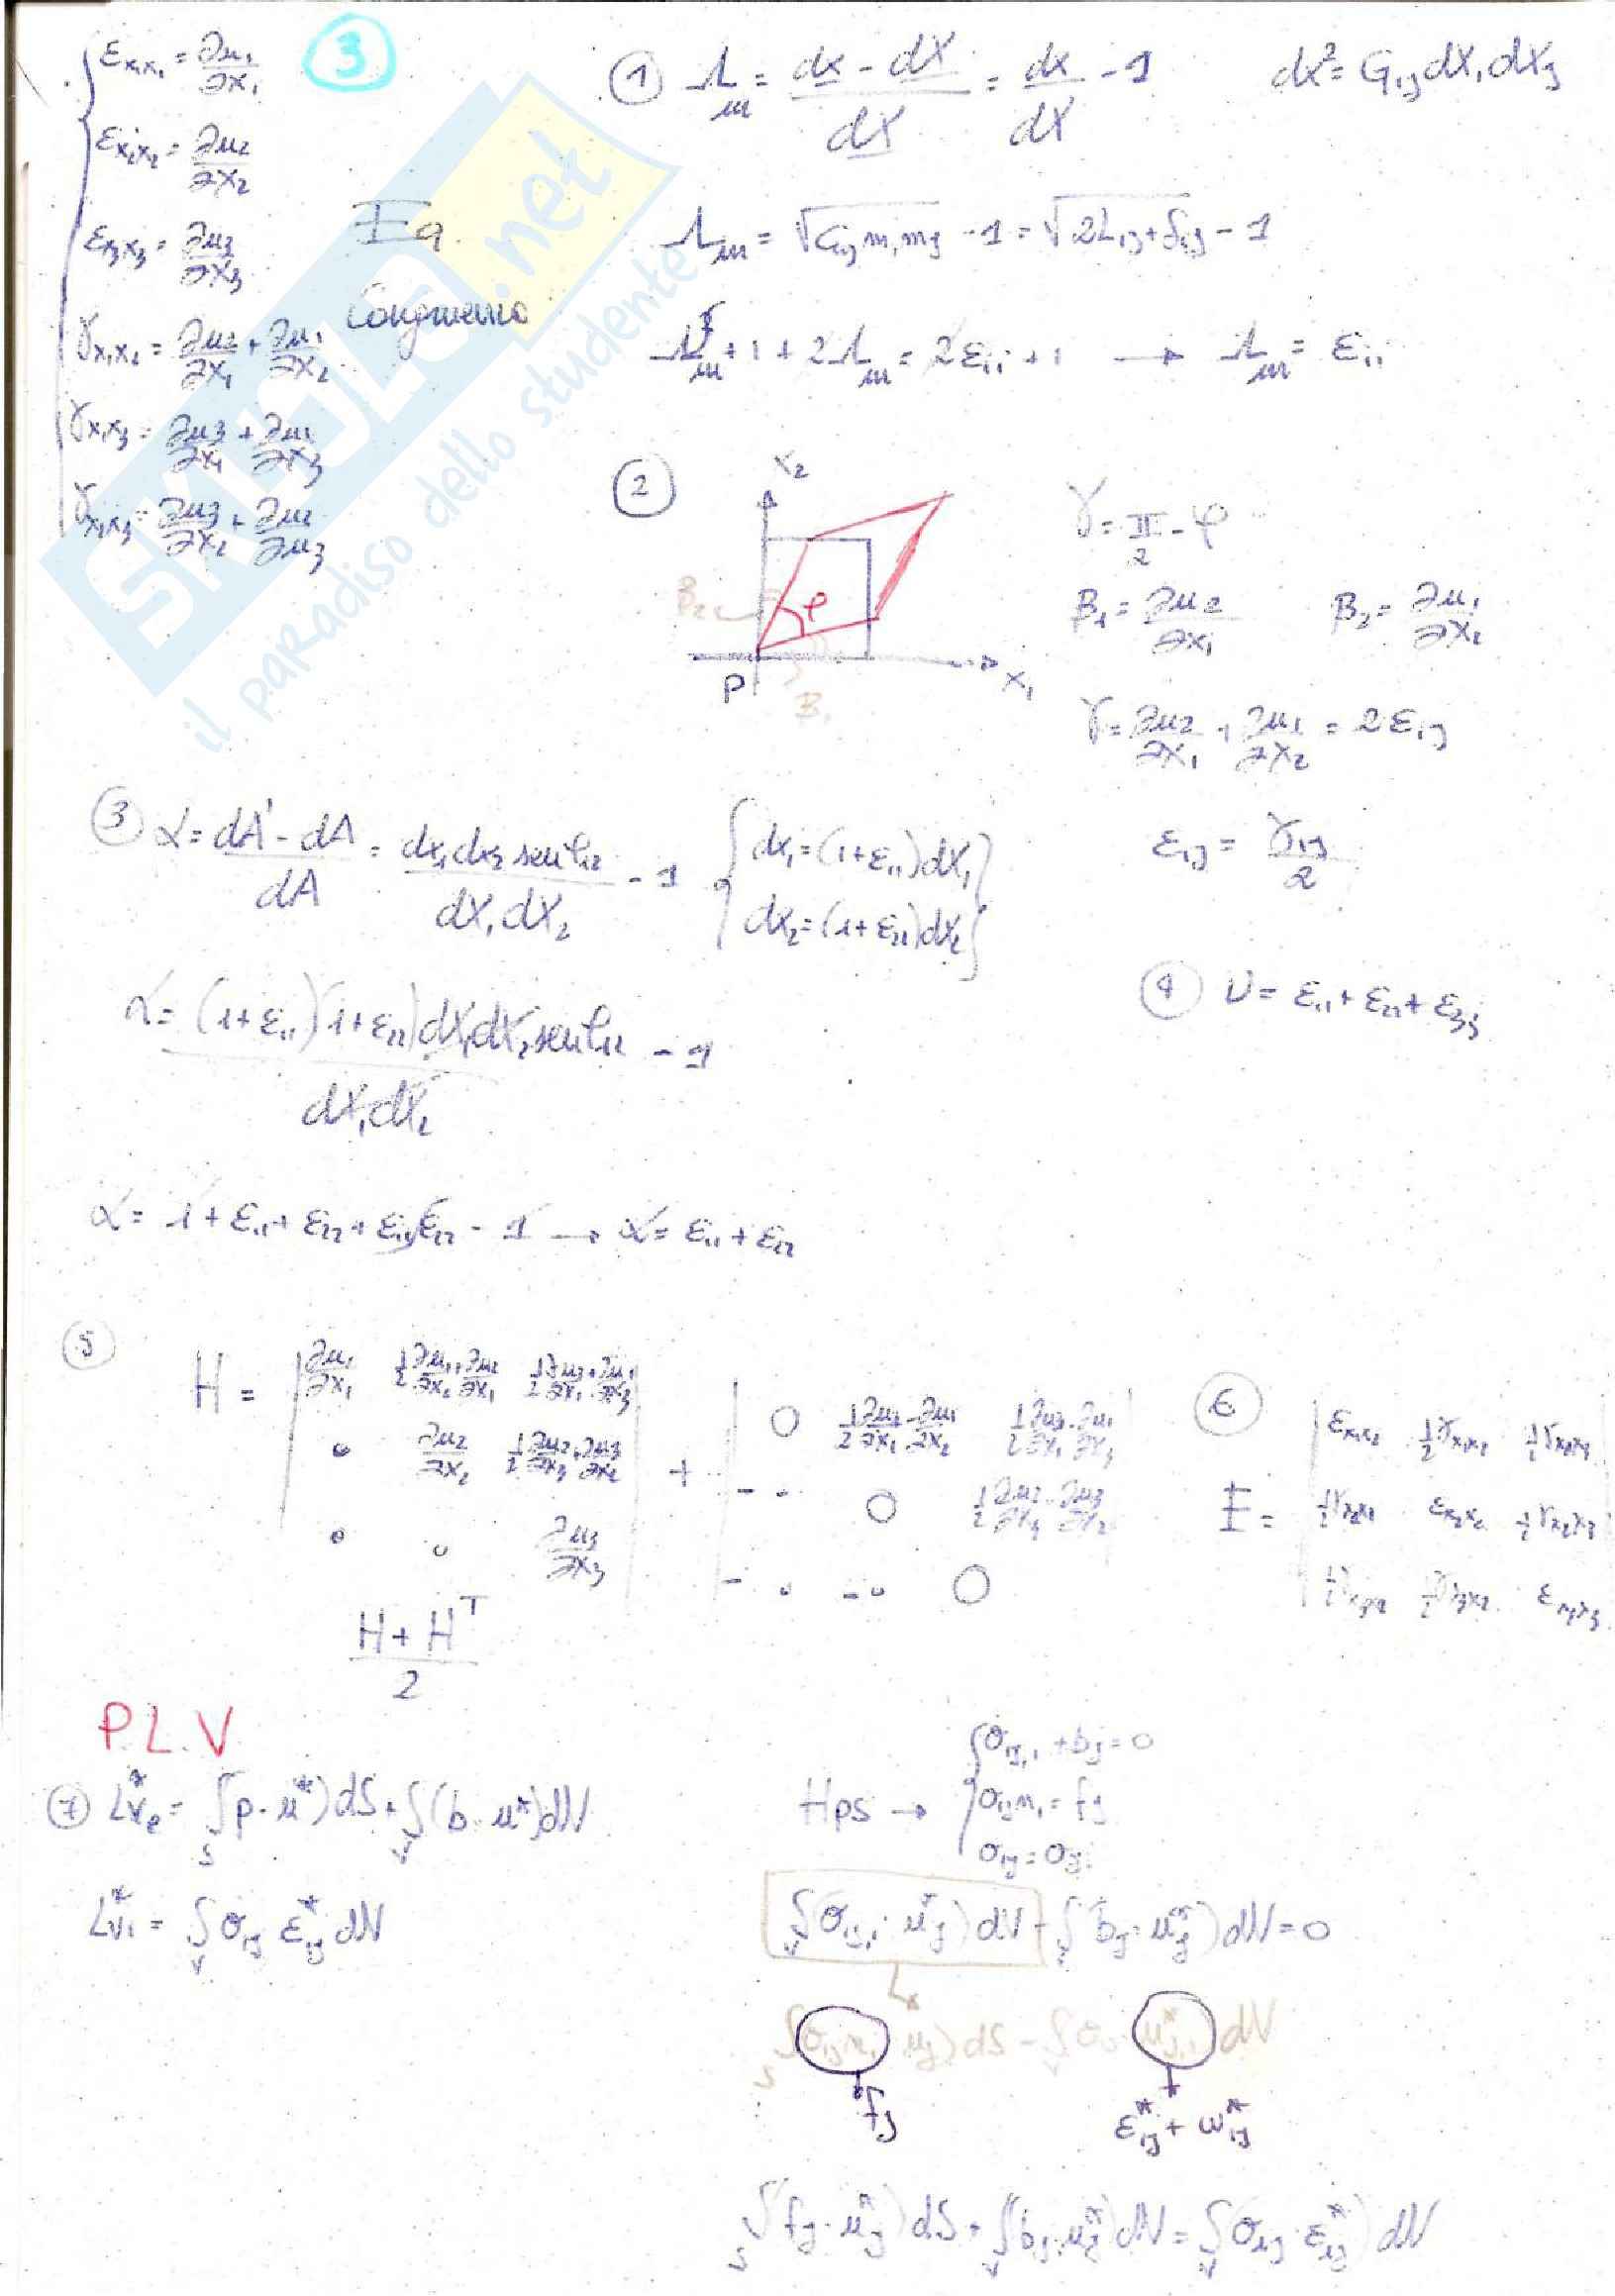 3
εx₁x₁ = ∂u₁/∂x₁
εx₂x₂ = ∂u₂/∂x₂
εx₃x₃ = ∂u₃/∂x₃
γx₁x₂ = ∂u₂/∂x₁ + ∂u₁/∂x₂
γx₁x₃ = ∂u₃/∂x₁ + ∂u₁/∂x₃
γx₂x₃ = ∂u₃/∂x₂ + ∂u₂/∂u₃
Eq.
Congruenza
① Λm = (dx - dX)/dX = dx/dX - 1 dx² = Gij dXi dXj
Λm = √(Gij mi mj) - 1 = √(2Lij + δij) - 1
Λm² + 1 + 2Λm = 2εii + 1 → Λm = εii
②
x₂
B₂
φ
P
B₁
x₁
γ = π/2 - φ
B₁ = ∂u₂/∂x₁ B₂ = ∂u₁/∂x₂
γ = ∂u₂/∂x₁ + ∂u₁/∂x₂ = 2εij
εij = γij/2
③ α = (dA' - dA)/dA = dx₁dx₂ senφ₁₂/dX₁dX₂ - 1 { dx₁ = (1+ε₁₁)dX₁
dx₂ = (1+ε₂₂)dX₂ }
α = (1+ε₁₁)(1+ε₂₂)dX₁dX₂senφ₁₂/dX₁dX₂ - 1
④ ν = ε₁₁ + ε₂₂ + ε₃₃
α = 1 + ε₁₁ + ε₂₂ + ε₁₁ε₂₂ - 1 → α = ε₁₁ + ε₂₂
⑤ H = | ∂u₁/∂x₁ ½ ∂u₁/∂x₂ + ∂u₂/∂x₁ ½ ∂u₃/∂x₁ + ∂u₁/∂x₃ |
| • ∂u₂/∂x₂ ½ ∂u₂/∂x₃ + ∂u₃/∂x₂ |
| • • ∂u₃/∂x₃ |
+
| 0 ½ ∂u₂/∂x₁ - ∂u₁/∂x₂ ½ ∂u₃/∂x₁ - ∂u₁/∂x₃ |
| -- 0 ½ ∂u₂/∂x₃ - ∂u₃/∂x₂ |
| -• -• 0 |
(H + Hᵀ)/2
⑥ E = | εx₁x₂ ½γx₁x₂ ½γx₁x₃ |
| ½γx₂x₁ εx₂x₂ ½γx₂x₃ |
| ½γx₃x₁ ½γx₃x₂ εx₃x₃ |
P.L.V
⑦ Lve* = ∫S (p · u*) dS + ∫V (b · u*) dV
Lvi* = ∫V σij εij* dV
Hps → { σij,i + bj = 0
σij ni = fj
σij = σji
∫V (σij,i · uj*) dV + ∫V (bj · uj*) dV = 0
∫S (σij ni · uj) dS - ∫V σij uj,i* dV
fj
εij* + ωij*
∫S (fj · uj*) dS + ∫V (bj · uj*) dV = ∫V (σij · εij*) dV
SKUOLA.net
il paradiso dello studente